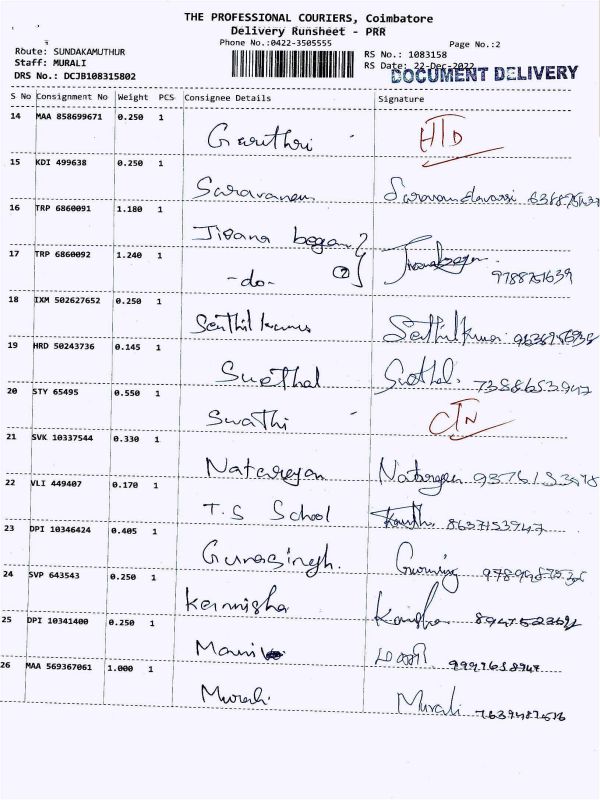 THE PROFESSIONAL COURIERS, Coimbatore
Delivery Runsheet - PRR
Phone No.:0422-3505555
Page No.:2
Route: SUNDAKAMUTHUR
RS No.: 1083158
Staff: MURALI
RS Date: 22-Dec-2022
DRS No.: DCJB108315802
DOCUMENT DELIVERY
S No Consignment No Weight PCS Consignee Details Signature
14 MAA 858699671 0.250 1 HTD
15 KDI 499638 0.250 1
16 TRP 6860091 1.180 1 Jisana began
17 TRP 6860092 1.240 1 -do- 2 9788751639
18 IXM 502627652 0.250 1 Senthil kumar
19 HRD 50243736 0.145 1 7358653947
20 STY 65495 0.550 1 Swathi CTN
21 SVK 10337544 0.330 1 Natarayan
22 VLI 449407 0.170 1 T.S School 8637153947
23 DPI 10346424 0.405 1 Gunasingh.
24 SVP 643543 0.250 1
25 DPI 10341400 0.250 1
26 MAA 569367061 1.000 1 Murali Murali